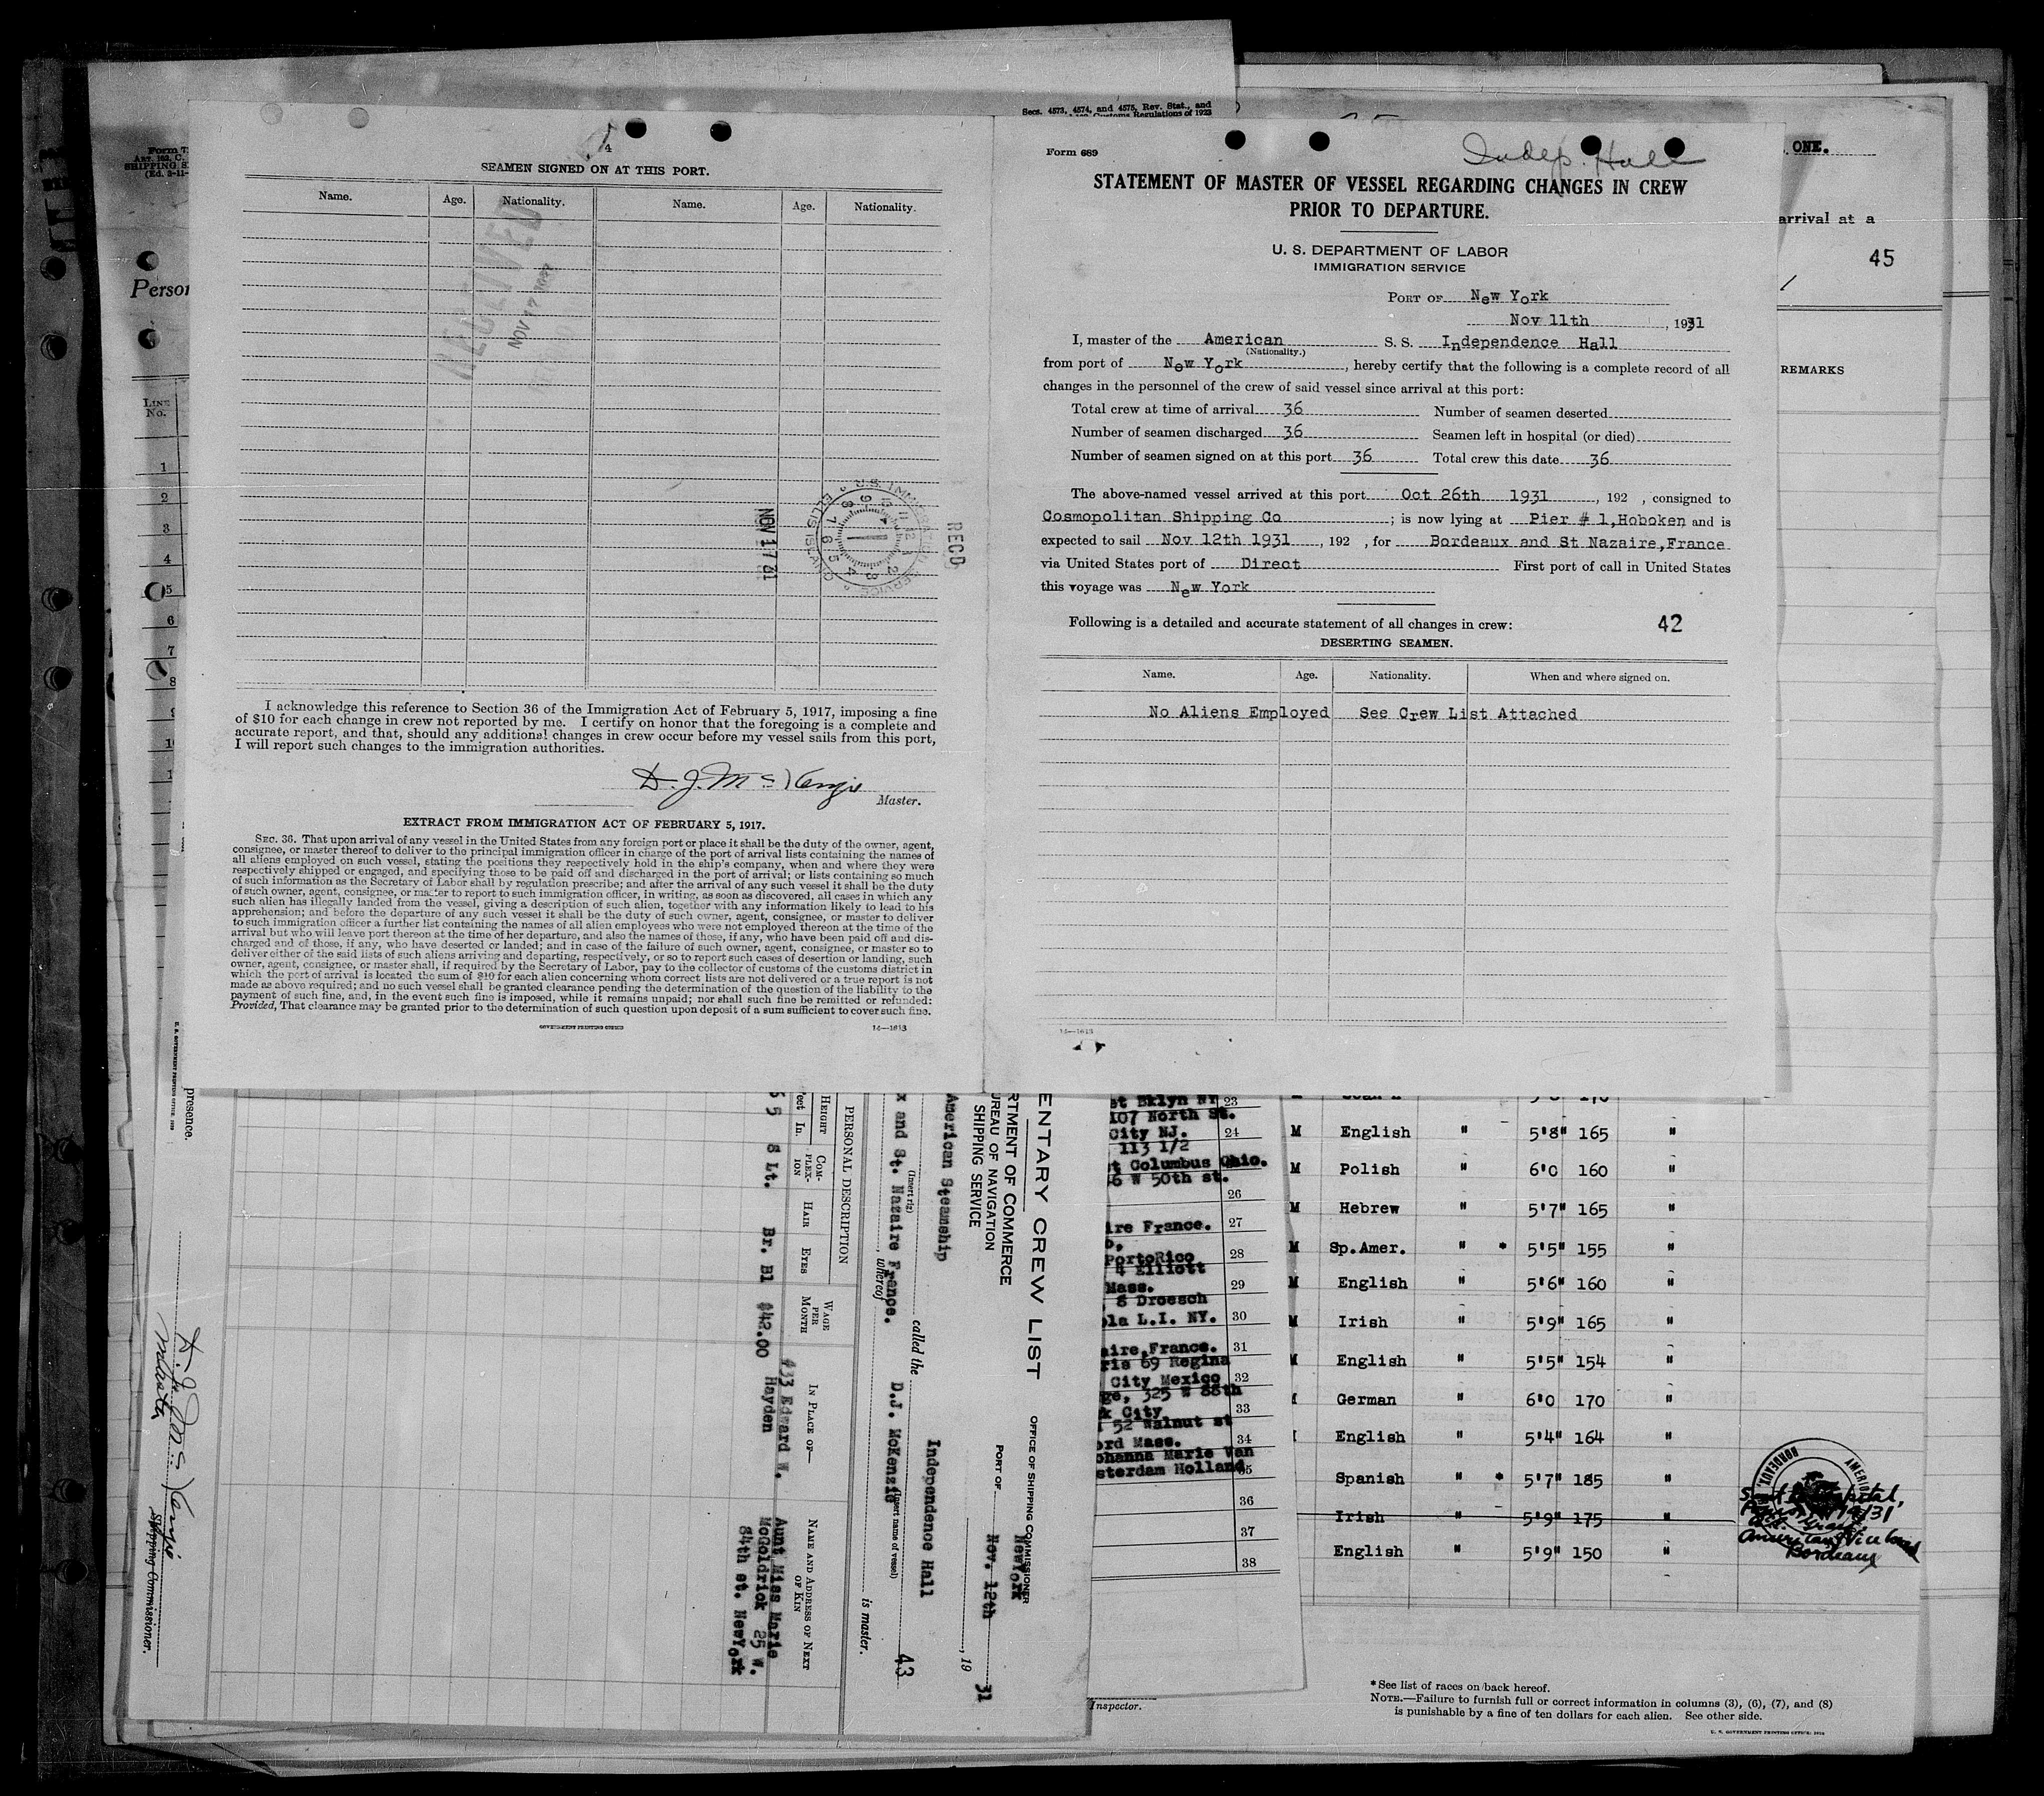 Secs. 4573, 4574, and 4575, Rev. Stat., and
Customs Regulations of 1923
4
SEAMEN SIGNED ON AT THIS PORT.
Name. Age. Nationality. Name. Age. Nationality.
RECEIVED
NOV 17
U.S. IMMIGRATION SERVICE
ELLIS ISLAND
NOV 17 31
RECD
I acknowledge this reference to Section 36 of the Immigration Act of February 5, 1917, imposing a fine
of $10 for each change in crew not reported by me. I certify on honor that the foregoing is a complete and
accurate report, and that, should any additional changes in crew occur before my vessel sails from this port,
I will report such changes to the immigration authorities.
D. J. McKenzie
Master.
EXTRACT FROM IMMIGRATION ACT OF FEBRUARY 5, 1917.
SEC. 36. That upon arrival of any vessel in the United States from any foreign port or place it shall be the duty of the owner, agent,
consignee, or master thereof to deliver to the principal immigration officer in charge of the port of arrival lists containing the names of
all aliens employed on such vessel, stating the positions they respectively hold in the ship's company, when and where they were
respectively shipped or engaged, and specifying those to be paid off and discharged in the port of arrival; or lists containing so much
of such information as the Secretary of Labor shall by regulation prescribe; and after the arrival of any such vessel it shall be the duty
of such owner, agent, consignee, or master to report to such immigration officer, in writing, as soon as discovered, all cases in which any
such alien has illegally landed from the vessel, giving a description of such alien, together with any information likely to lead to his
apprehension; and before the departure of any such vessel it shall be the duty of such owner, agent, consignee, or master to deliver
to such immigration officer a further list containing the names of all alien employees who were not employed thereon at the time of the
arrival but who will leave port thereon at the time of her departure, and also the names of those, if any, who have been paid off and dis-
charged and of those, if any, who have deserted or landed; and in case of the failure of such owner, agent, consignee, or master so to
deliver either of the said lists of such aliens arriving and departing, respectively, or so to report such cases of desertion or landing, such
owner, agent, consignee, or master shall, if required by the Secretary of Labor, pay to the collector of customs of the customs district in
which the port of arrival is located the sum of $10 for each alien concerning whom correct lists are not delivered or a true report is not
made as above required; and no such vessel shall be granted clearance pending the determination of the question of the liability to the
payment of such fine, and, in the event such fine is imposed, while it remains unpaid; nor shall such fine be remitted or refunded:
Provided, That clearance may be granted prior to the determination of such question upon deposit of a sum sufficient to cover such fine.
GOVERNMENT PRINTING OFFICE 14—1613
Form 689
Indep. Hall
STATEMENT OF MASTER OF VESSEL REGARDING CHANGES IN CREW
PRIOR TO DEPARTURE.
U. S. DEPARTMENT OF LABOR
IMMIGRATION SERVICE
PORT OF New York
Nov 11th, 1931
I, master of the American S. S. Independence Hall
(Nationality.)
from port of New York, hereby certify that the following is a complete record of all
changes in the personnel of the crew of said vessel since arrival at this port:
Total crew at time of arrival 36 Number of seamen deserted
Number of seamen discharged 36 Seamen left in hospital (or died)
Number of seamen signed on at this port 36 Total crew this date 36
The above-named vessel arrived at this port Oct 26th 1931, 192 , consigned to
Cosmopolitan Shipping Co; is now lying at Pier # 1,Hoboken and is
expected to sail Nov 12th 1931, 192 , for Bordeaux and St Nazaire,France
via United States port of Direct First port of call in United States
this voyage was New York
Following is a detailed and accurate statement of all changes in crew: 42
DESERTING SEAMEN.
Name. Age. Nationality. When and where signed on.
No Aliens Employed See Crew List Attached
14—1613
ONE.
arrival at a
45
REMARKS
Form 7
SHIPPING S
(Ed. 3-11-
Person
LINE
No.
1
2
3
4
5
6
7
8
presence.
ENTARY CREW LIST
RTMENT OF COMMERCE
UREAU OF NAVIGATION
SHIPPING SERVICE
OFFICE OF SHIPPING COMMISSIONER
PORT OF NewYork
Nov. 12th, 19 31
American Steamship called the Independence Hall
(Insert rig) (Insert name of vessel)
x and St. Nazaire France. , whereof D.J. McKenzie is master.
43
PERSONAL DESCRIPTION
HEIGHT COM-PLEX-ION HAIR EYES WAGE PER MONTH IN PLACE OF— NAME AND ADDRESS OF NEXT OF KIN
Feet In.
5 8 Lt. Br. Bl $42.00 #33 Edward W. Hayden
Aunt Miss Marie
McGoldrick 25 W.
84th st. NewYork
D. J. McKenzie
Master
Shipping Commissioner.
st Bklyn NY 23
107 North St.
City NJ. 24
113 1/2
t Columbus Ohio.
6 W 50th st.
26
ire France. 27
PortoRico 28
4 Elliott
Mass. 29
8 Droesch
ola L.I. NY. 30
aire,France. 31
ris 69 Regina
City Mexico 32
ge, 325 W 88th
k City 33
52 Walnut st
ord Mass. 34
ohanna Marie Van
sterdam Holland 35
36
37
38
M English " 5'8" 165 "
M Polish " 6'0 160 "
M Hebrew " 5'7" 165 "
M Sp.Amer. " * 5'5" 155 "
M English " 5'6" 160 "
M Irish " 5'9" 165 "
M English " 5'5" 154 "
German " 6'0 170 "
English " 5'4" 164 "
Spanish " * 5'7" 185 "
Irish " 5'9" 175 "
English " 5'9" 150 "
BORDEAUX,
Bordeaux
Inspector.
*See list of races on back hereof.
NOTE.—Failure to furnish full or correct information in columns (3), (6), (7), and (8)
is punishable by a fine of ten dollars for each alien. See other side.
U. S. GOVERNMENT PRINTING OFFICE